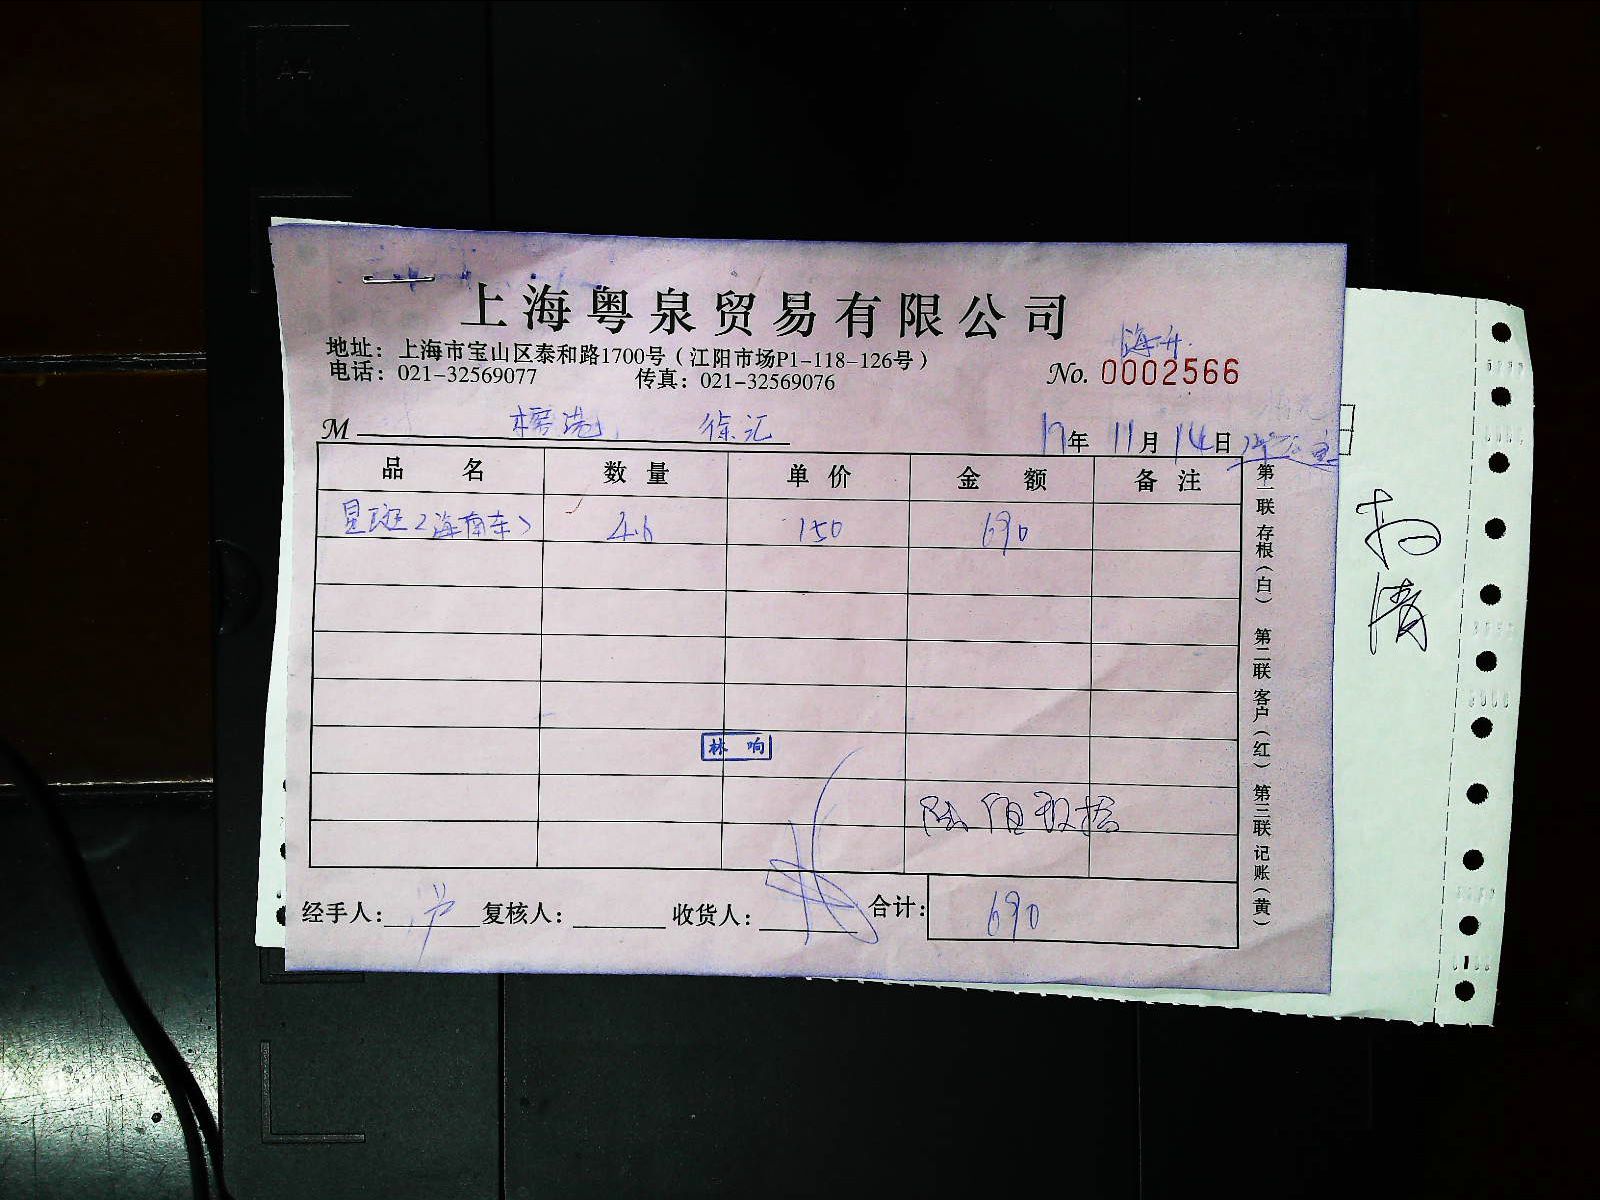 A4
上海粤泉贸易有限公司
地址：上海市宝山区泰和路1700号（江阳市场P1-118-126号）
电话：021-32569077 传真：021-32569076
海升
No. 0002566
M 榕港 徐汇 17年 11月 14日
品名 数量 单价 金额 备注
星斑（海南东） 4.6 150 690
林响
陆佰玖拾
经手人： 复核人： 收货人： 合计： 690
第一联 存根（白） 第二联 客户（红） 第三联 记账（黄）
扣
清